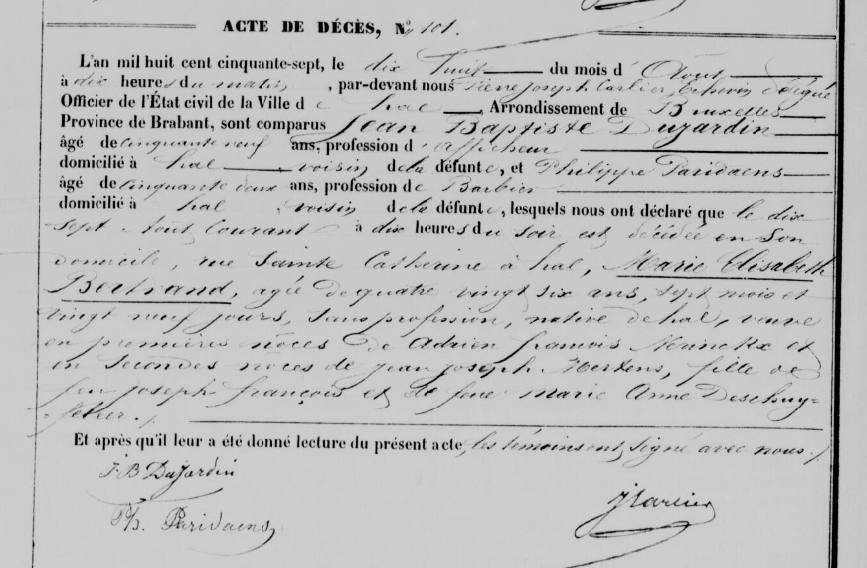 ACTE DE DÉCÈS, N° 101.
L'an mil huit cent cinquante-sept, le dix huit du mois d'Août
à dix heures du matin, par-devant nous Pierre Joseph Carlier, Echevin délégué
Officier de l'État civil de la Ville de hal, Arrondissement de Bruxelles
Province de Brabant, sont comparus Jean Baptiste Dujardin
âgé de cinquante neuf ans, profession d'afficheur
domicilié à hal voisin de la défunte, et Philippe Paridaens
âgé de cinquante deux ans, profession de Barbier
domicilié à hal, voisin de la défunte, lesquels nous ont déclaré que le dix
sept Août Courant à dix heures du soir est décédée en Son
domicile, rue Sainte Catherine à hal, Marie Elisabeth
Bertrand, agée de quatre vingt six ans, sept mois et
vingt neuf jours, Sans profession, native de hal, veuve
en premières nôces de Adrien francois Neinckx et
en Secondes nôces de jean joseph Mertens, fille de
feu joseph françois et de feue Marie Anne Deschuy=
=felier./.
Et après qu'il leur a été donné lecture du présent acte, les témoins ont signé avec nous./
J B DuJardin
Ph. Paridaens
JCarlier